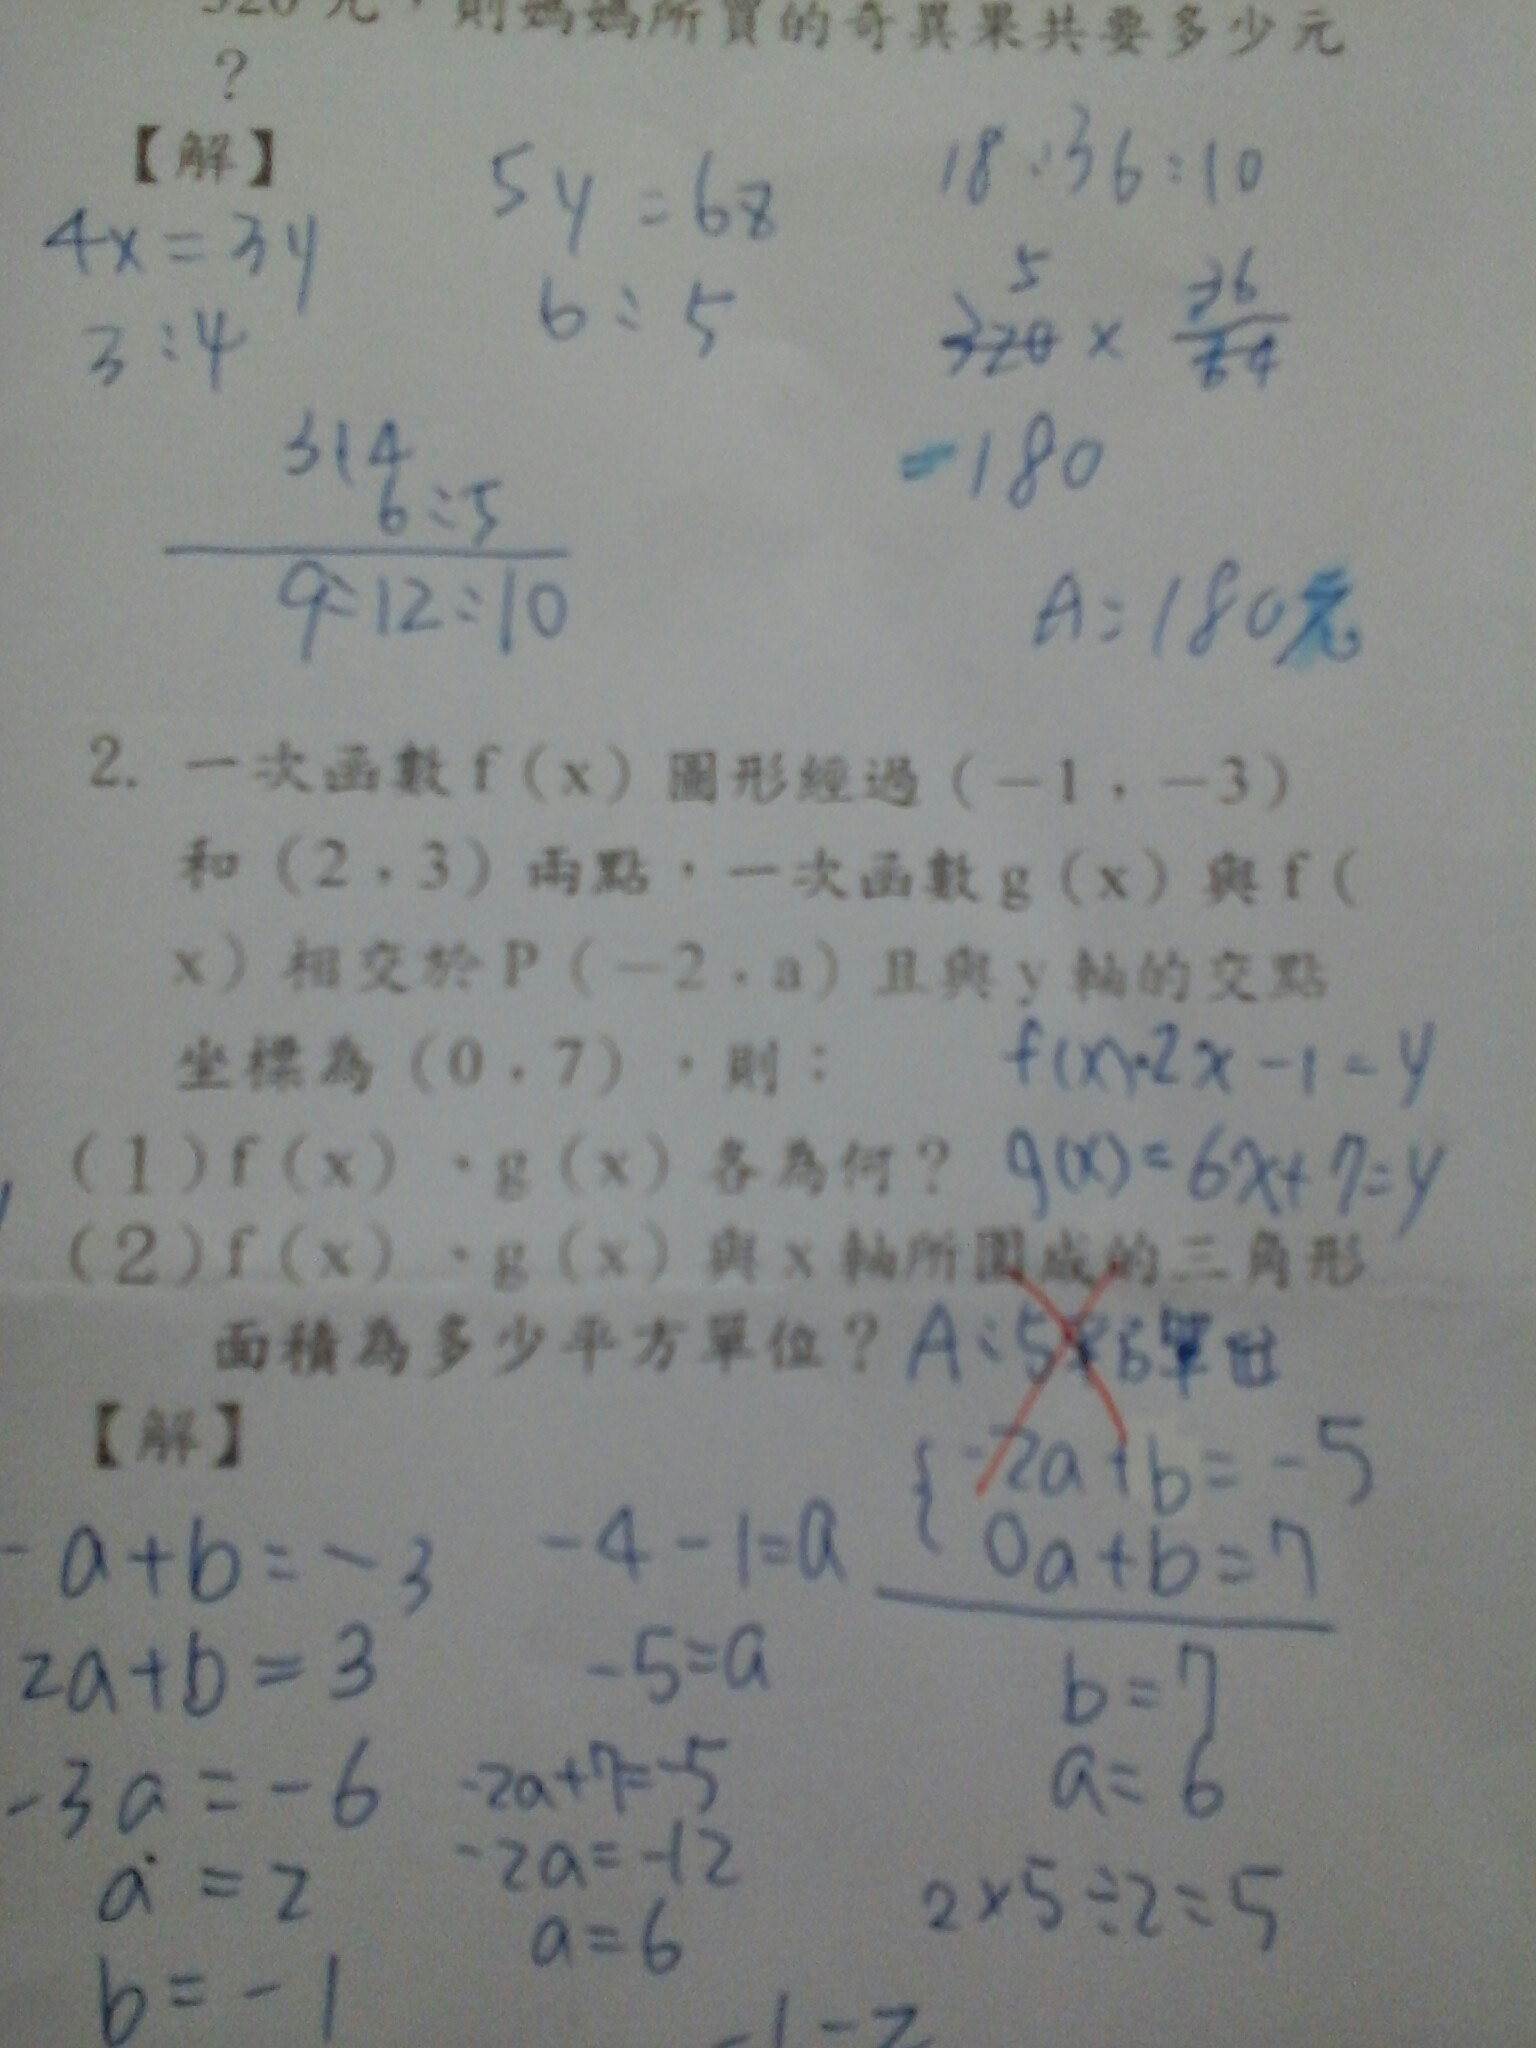 320元，則媽媽所買的奇異果共要多少元
？
【解】
4x=3y
3:4
5y=6z
6:5
3:4
6:5
9:12:10
18:36:10
5
36
320×
64
=180
A:180元
2. 一次函數f(x)圖形經過(-1,-3)
和(2,3)兩點，一次函數g(x)與f(
x)相交於P(-2,a)且與y軸的交點
坐標為(0,7)，則：
f(x)=2x-1=y
(1)f(x)、g(x)各為何？
g(x)=6x+7=y
(2)f(x)、g(x)與x軸所圍成的三角形
面積為多少平方單位？
A:5
【解】
-a+b=-3
2a+b=3
-3a=-6
a=2
b=-1
-4-1=a
-5=a
-2a+7=-5
-2a=-12
a=6
-2a+b=-5
0a+b=7
b=7
a=6
2×5÷2=5